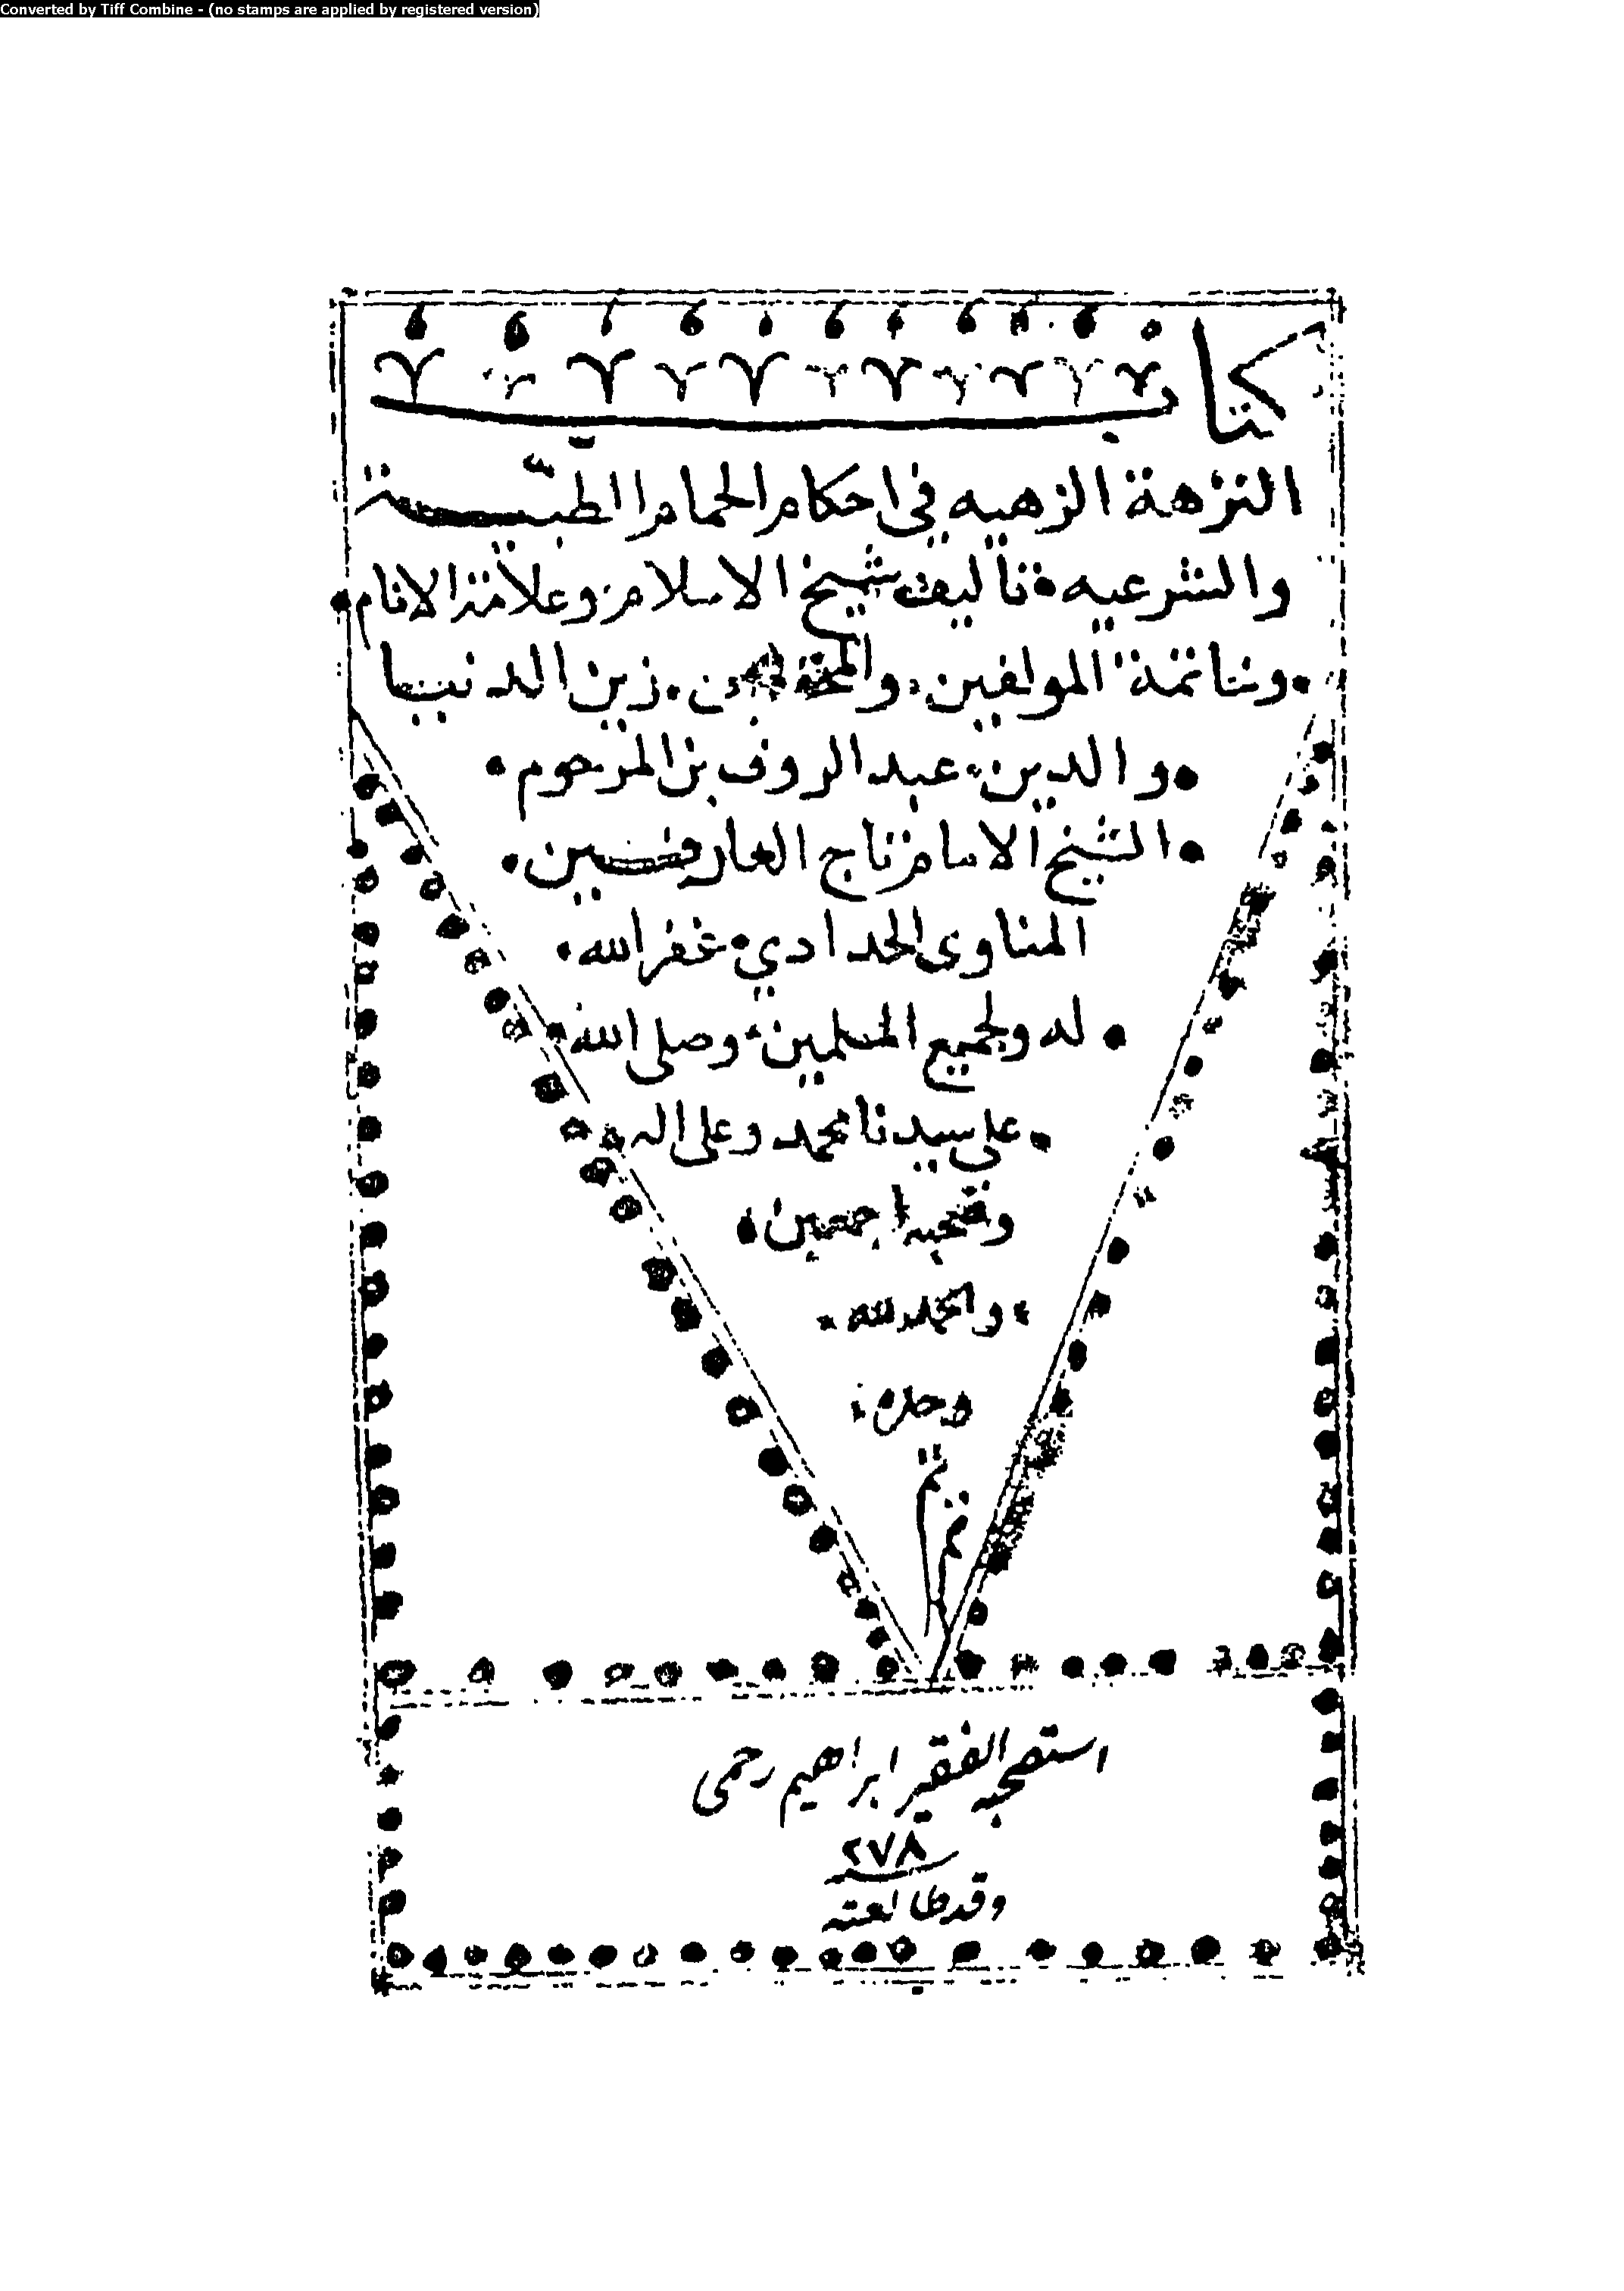 Converted by Tiff Combine - (no stamps are applied by registered version)
كتاب
النزهة الزهيه في احكام الحمام الطبّية
والشرعيه تاليف شيخ الاسلام وعلامة الانام
وخاتمة المولفين والمحققين زين الدنيا
والدين عبد الروف بن المرحوم
الشيخ الامام تاج العارفين
المناوى الحدادي غفر الله
له ولجميع المسلمين وصلى الله
على سيدنا محمد وعلى اله
وصحبه اجمعين
والحمد لله
وحده
تم
تم
استصحبه الفقير ابراهيم رحمى
٢٧٨
وقد طالعته